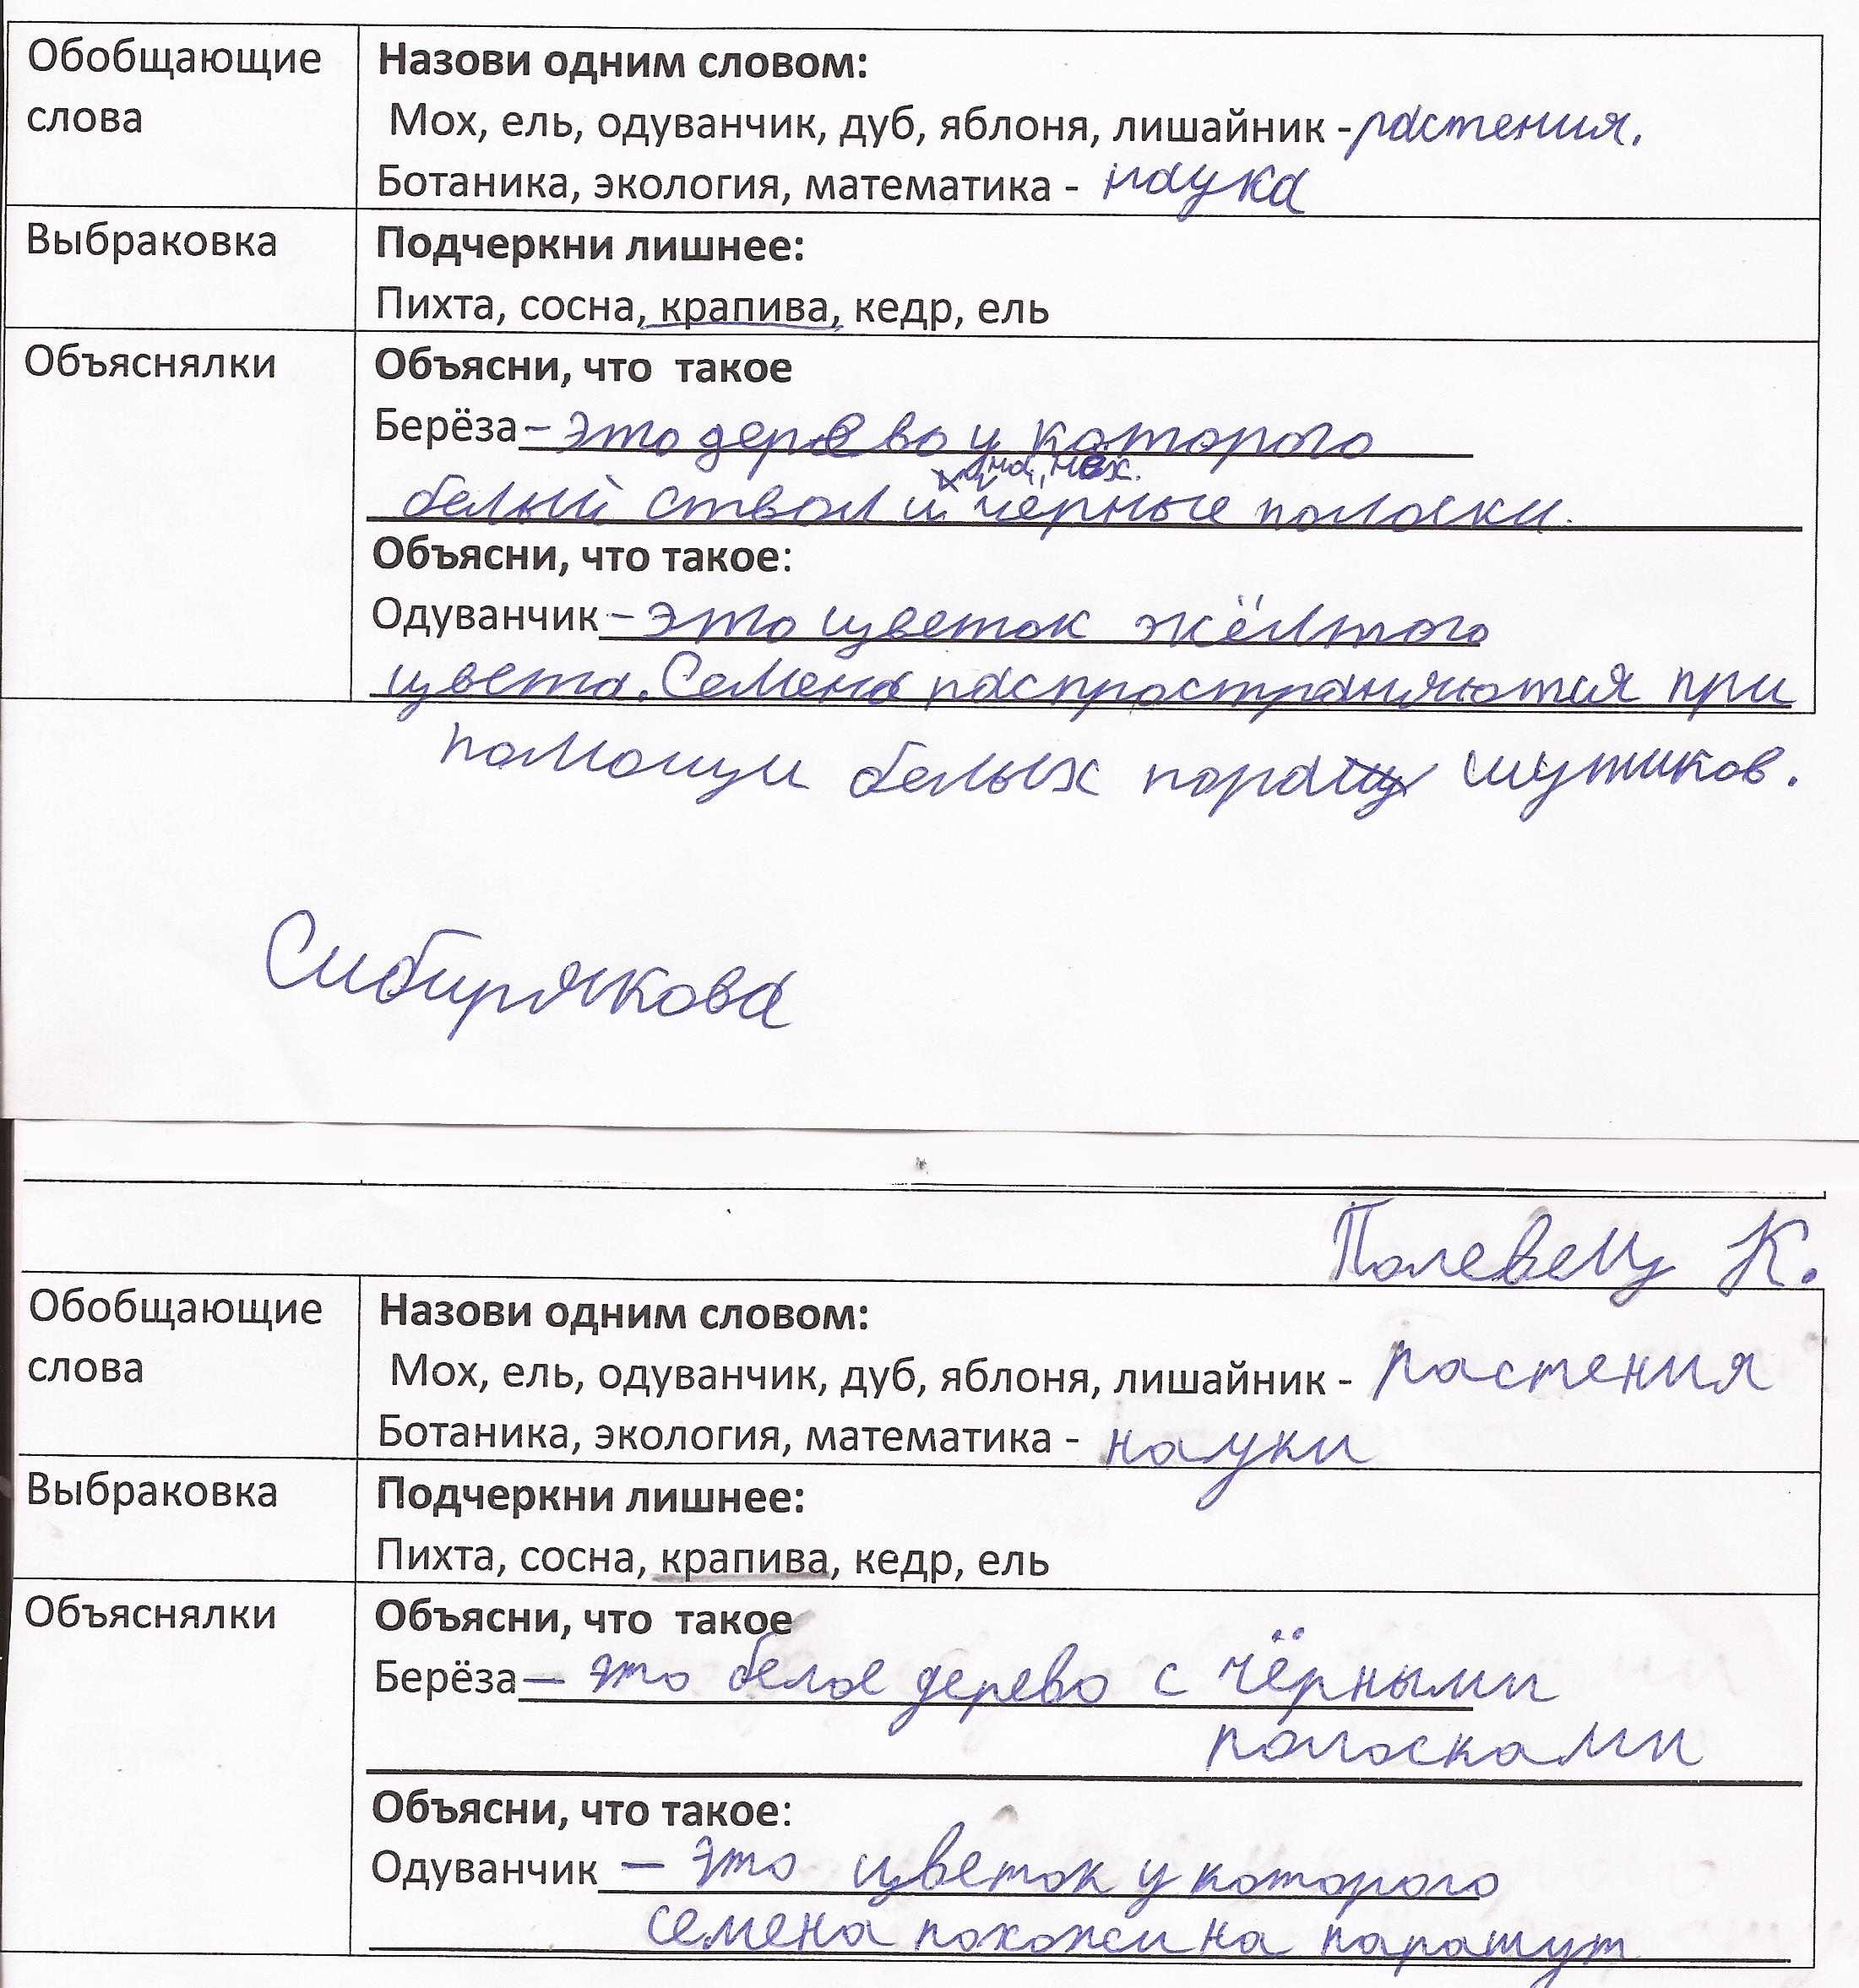 Обобщающие слова
Назови одним словом:
Мох, ель, одуванчик, дуб, яблоня, лишайник - растения.
Ботаника, экология, математика - наука
Выбраковка
Подчеркни лишнее:
Пихта, сосна, крапива, кедр, ель
Объяснялки
Объясни, что такое
Берёза – это дерево у которого
на нём
белый ствол и чёрные полоски.
Объясни, что такое:
Одуванчик – это цветок жёлтого
цвета. Семена распространяются при
помощи белых пара шутиков.
Сибирякова
Полевец К.
Обобщающие слова
Назови одним словом:
Мох, ель, одуванчик, дуб, яблоня, лишайник - растения
Ботаника, экология, математика - науки
Выбраковка
Подчеркни лишнее:
Пихта, сосна, крапива, кедр, ель
Объяснялки
Объясни, что такое
Берёза — это белое дерево с чёрными
полосками
Объясни, что такое:
Одуванчик — это цветок у которого
семена похожи на парашут